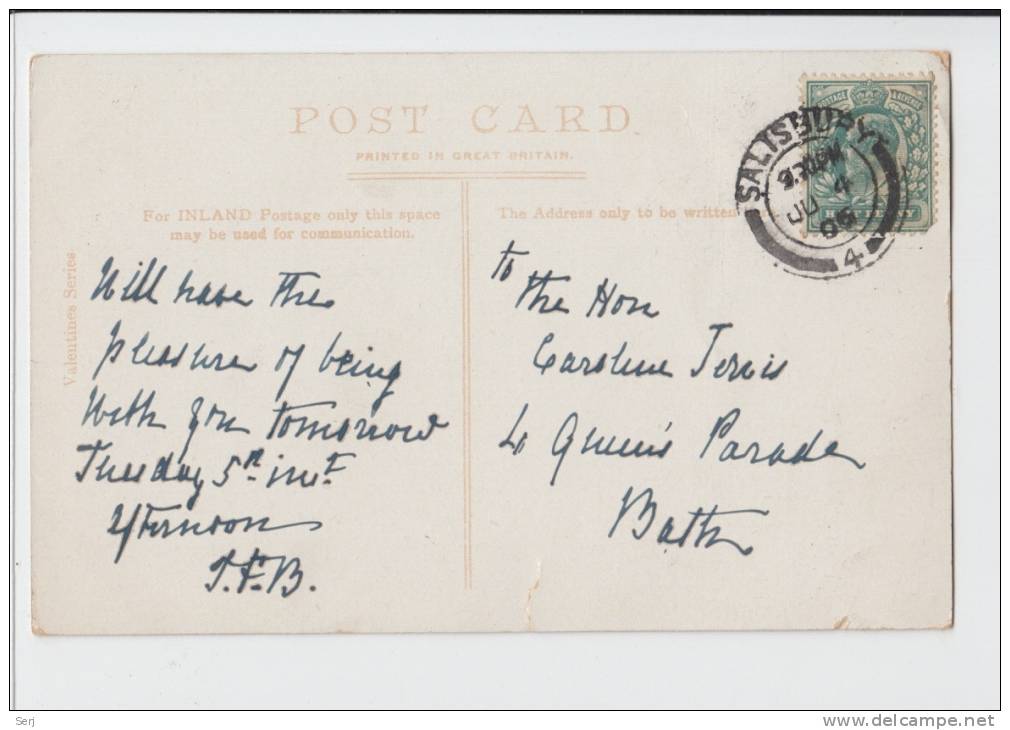 POST CARD.
PRINTED IN GREAT BRITAIN.
For INLAND Postage only this space
may be used for communication.
The Address only to be written
Valentines Series
POSTAGE & REVENUE
HALF PENNY
SALISBURY
9.30PM
4
JU
06
4
Will have the
pleasure of being
with you tomorrow
Tuesday 5th inst
afternoon
T.F.B.
to
The Hon
Caroline Jervis
4 Queen's Parade
Bath
Serj
www.delcampe.net